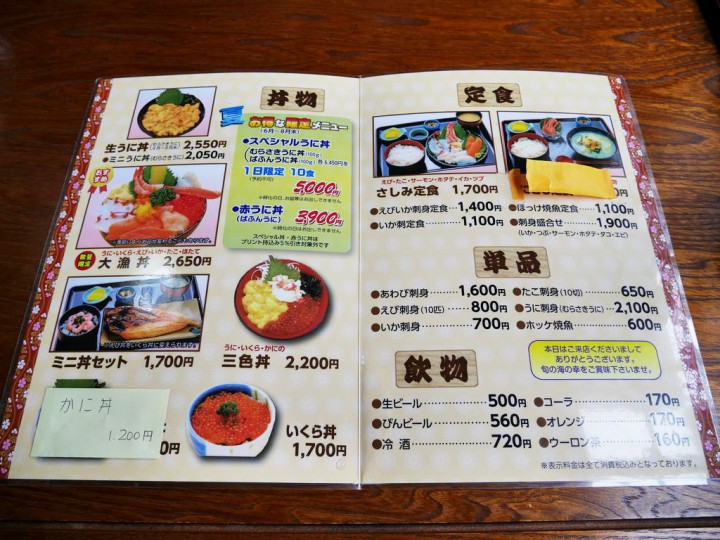 丼物
生うに丼 2,550円
●ミニうに丼(むらさきうに) 2,050円
おすすめ
数量限定
うに・いくら・えび・いか・たこ・ほたて
大漁丼 2,650円
ミニ丼セット 1,700円
かに丼
1.200円
(6月〜8月末)
●スペシャルうに丼
むらさきうに丼(100g)
ばふんうに丼(100g)
1日限定 10食
(予約不可)
5,000円
●赤うに丼
(ばふんうに)
3,900円
スペシャル丼・赤うに丼は
プリント持込み5%引き対象外です
うに・いくら・かにの
三色丼 2,200円
いくら丼
1,700円
定食
えび・たこ・サーモン・ホタテ・イカ・ツブ
さしみ定食 1,700円
●えびいか刺身定食…1,400円
●いか刺定食…………1,100円
●ほっけ焼魚定食……1,100円
●刺身盛合せ…………1,900円
(いか・つぶ・サーモン・ホタテ・タコ・エビ)
単品
●あわび刺身…………1,600円
●えび刺身(10匹)………800円
●いか刺身………………700円
●たこ刺身(10切)………650円
●うに刺身(むらさきうに)…2,100円
●ホッケ焼魚……………600円
本日はご来店くださいまして
ありがとうございます。
旬の海の幸をご賞味下さいませ。
飲物
●生ビール………………500円
●びんビール……………560円
●冷 酒…………………720円
●コーラ…………………170円
●オレンジ………………170円
●ウーロン茶……………160円
※表示料金は全て消費税込みとなっております。